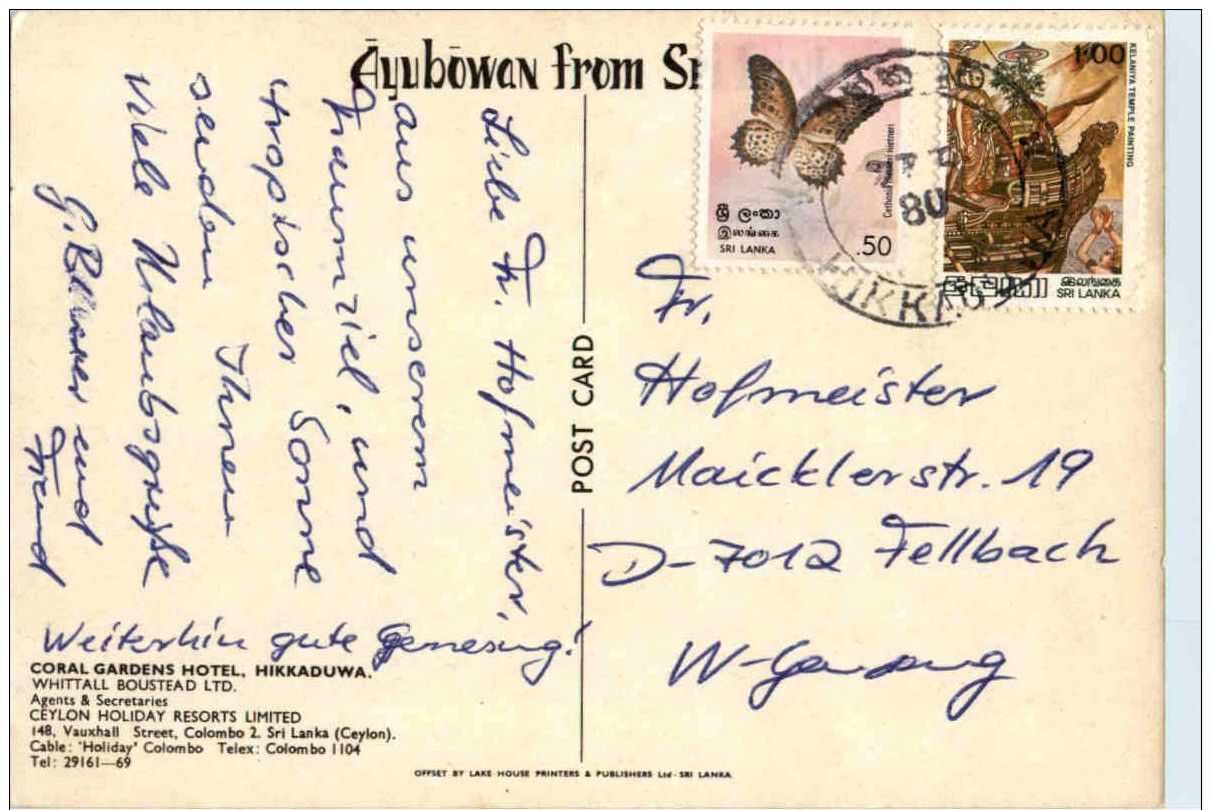 Āyubōwan from Sr
Liebe Fr. Hofmeister,
aus unserem
Traumziel, und
tropischer Sonne
senden Ihnen
viele Urlaubsgrüße
G. und
Weiterhin gute Genesung!
CORAL GARDENS HOTEL, HIKKADUWA.
WHITTALL BOUSTEAD LTD.
Agents & Secretaries
CEYLON HOLIDAY RESORTS LIMITED
148, Vauxhall Street, Colombo 2. Sri Lanka (Ceylon).
Cable: 'Holiday' Colombo Telex: Colombo 1104
Tel: 29161—69
POST CARD
OFFSET BY LAKE HOUSE PRINTERS & PUBLISHERS Ltd - SRI LANKA
ශ්‍රී ලංකා
இலங்கை
SRI LANKA
.50
1.00
KELANIYA TEMPLE PAINTING
இலங்கை
SRI LANKA
80
Fr.
Hofmeister
Maicklerstr. 19
D-7012 Fellbach
W-Germany